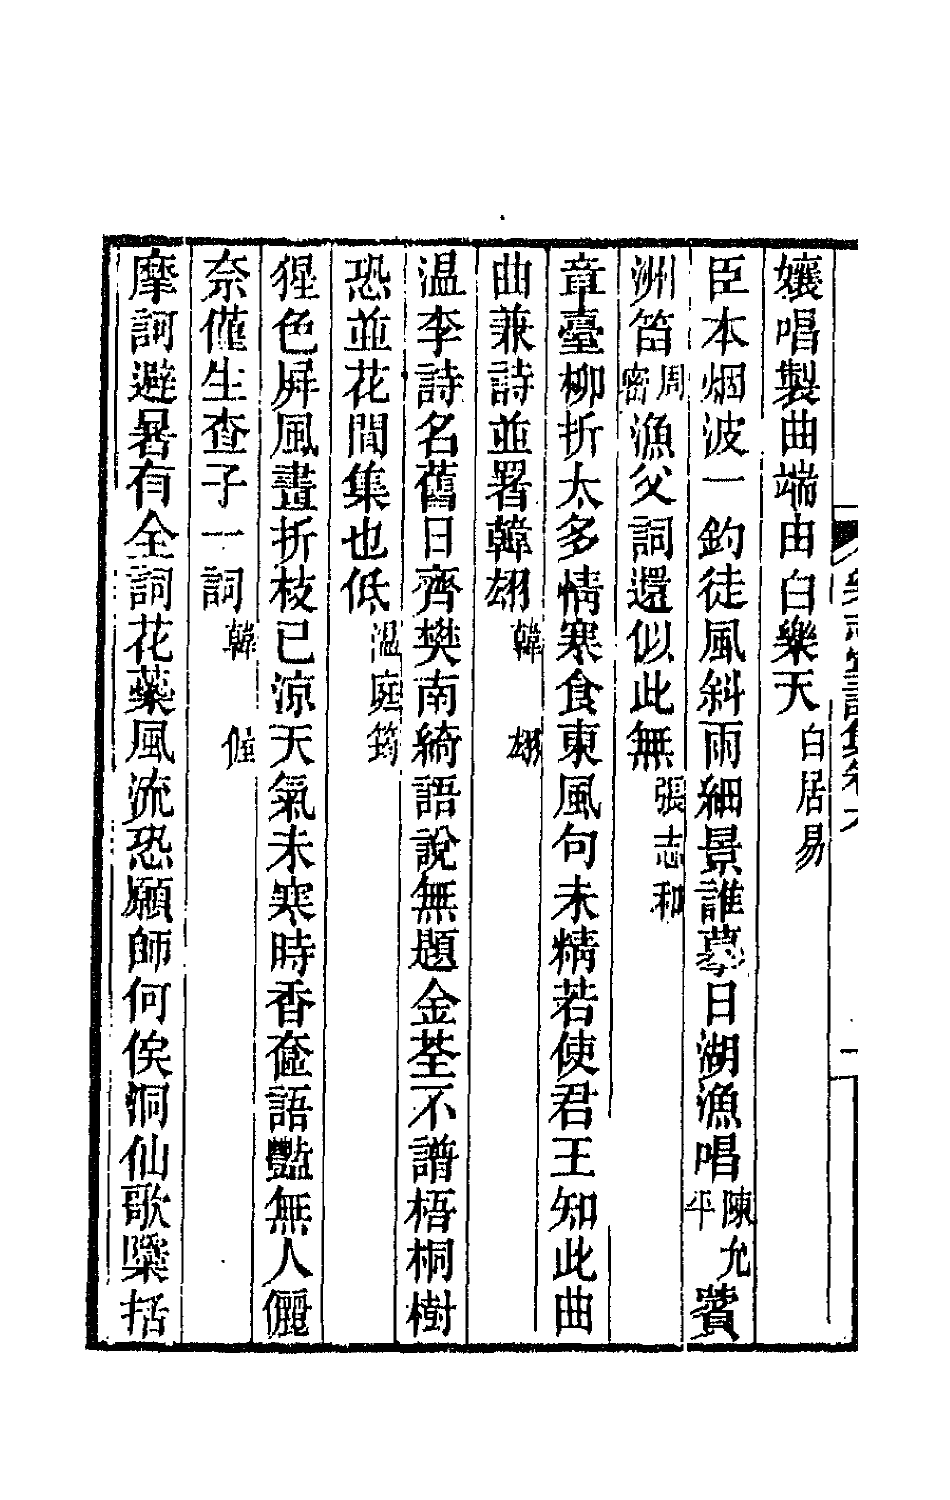 孃唱製曲端由白樂天白居易
臣本烟波一釣徒風斜雨細景誰摹日湖漁唱陳允平薲
洲笛周密漁父詞還似此無張志和
章臺柳折太多情寒食東風句未精若使君王知此曲
曲兼詩並署韓翃韓翃
温李詩名舊日齊樊南綺語說無題金荃不譜梧桐樹
恐並花間集也低温庭筠
猩色屛風畫折枝已涼天氣未寒時香奩語豔無人儷
奈僅生查子一詞韓偓
摩訶避暑有全詞花蘂風流恐願師何俟洞仙歌檃括